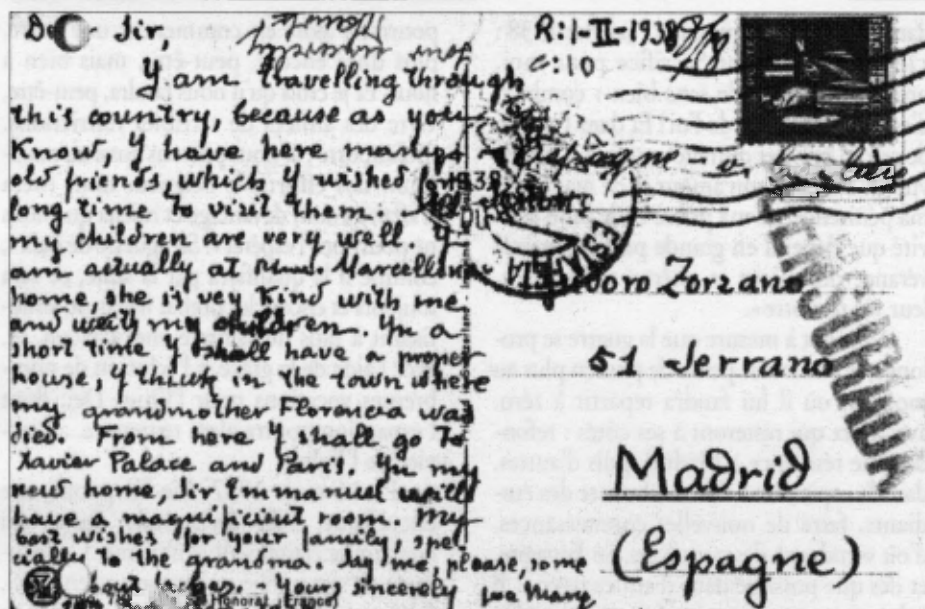 De Sir,
Y am travelling through
this country, because as you
Know, y have here many
old friends, which y wished for
long time to visit them.
my children are very well. Y
am actually at Marcellina
home, she is vey Kind with me
and with my children. Yn a
short time y shall have a proper
house, y think in the town where
my grandmother Florencia was
died. From here y shall go to
Xavier Palace and Paris. Yn my
new home, Sir Emmanuel will
have a magnificint room. My
best wishes for your family, spe
cially to the grandma. Say me, please, some
about Yours sincerely Mary
Honorat (France)
R: 1-II-1938
c: 10
Espagne
1938
Ysidoro Zorzano
51 Serrano
Madrid
(Espagne)
CENSURA